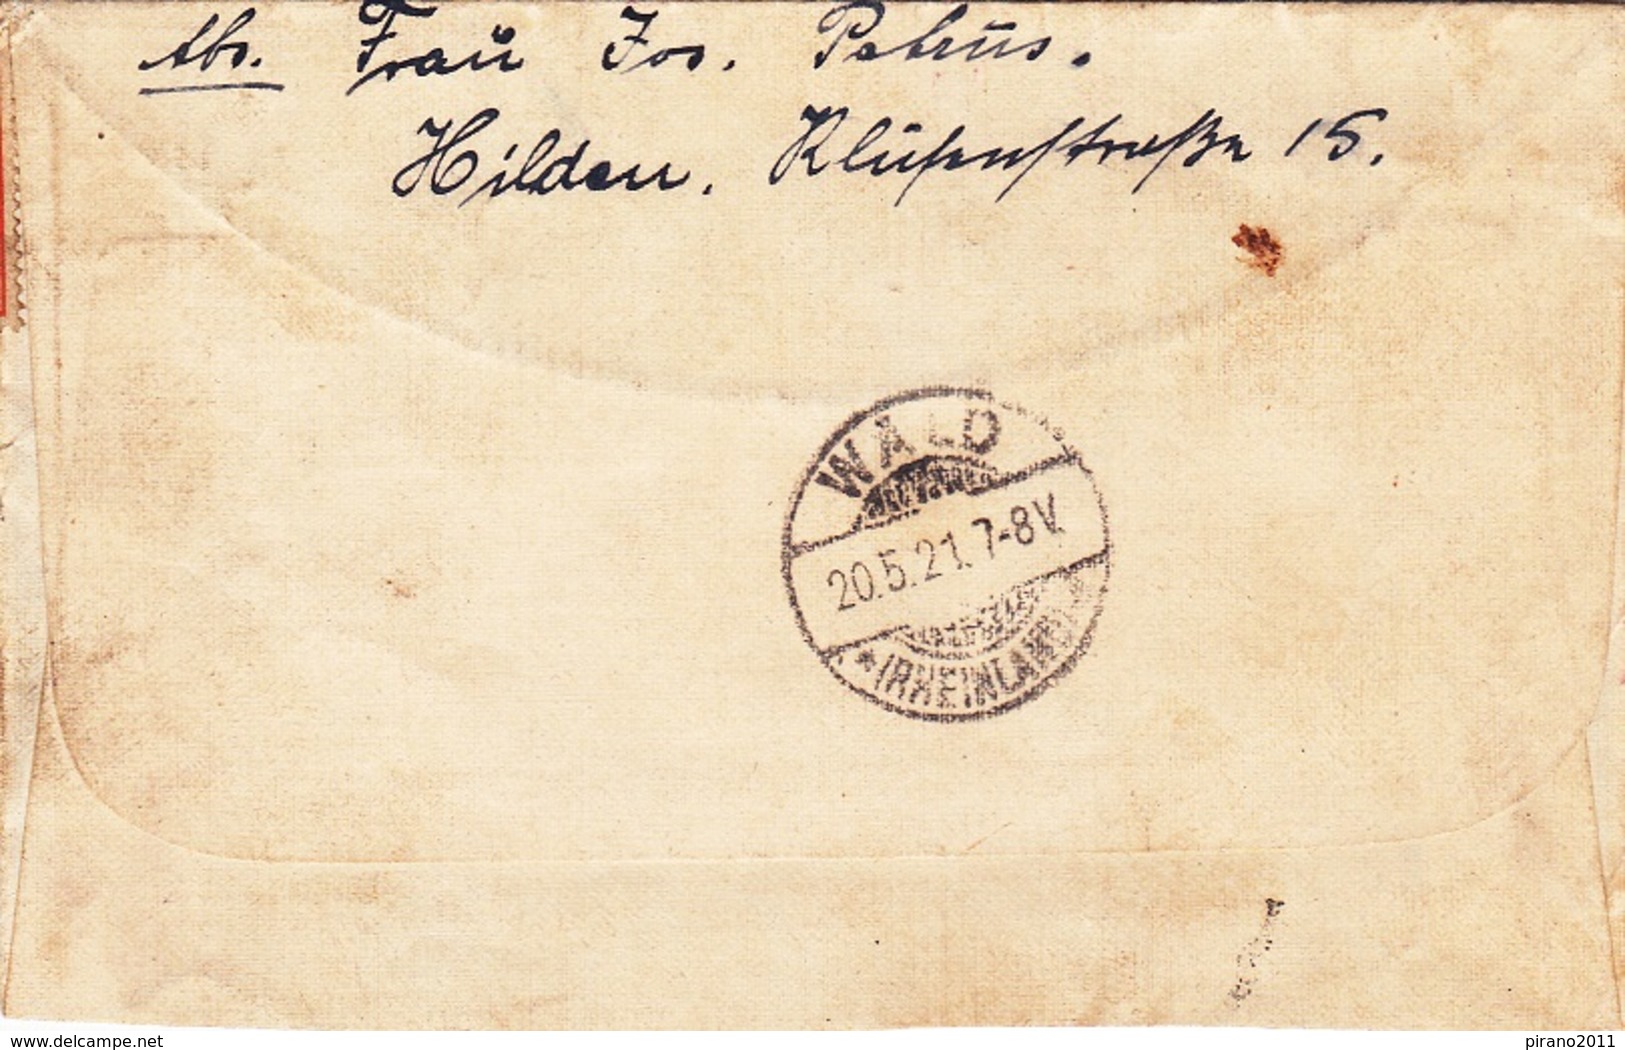 Abs. Frau Jos. Petrus.
Hilden. Klusenstraße 15.
WALD
20.5.21. 7-8 V.
* (RHEINLAND)
www.delcampe.net
pirano2011